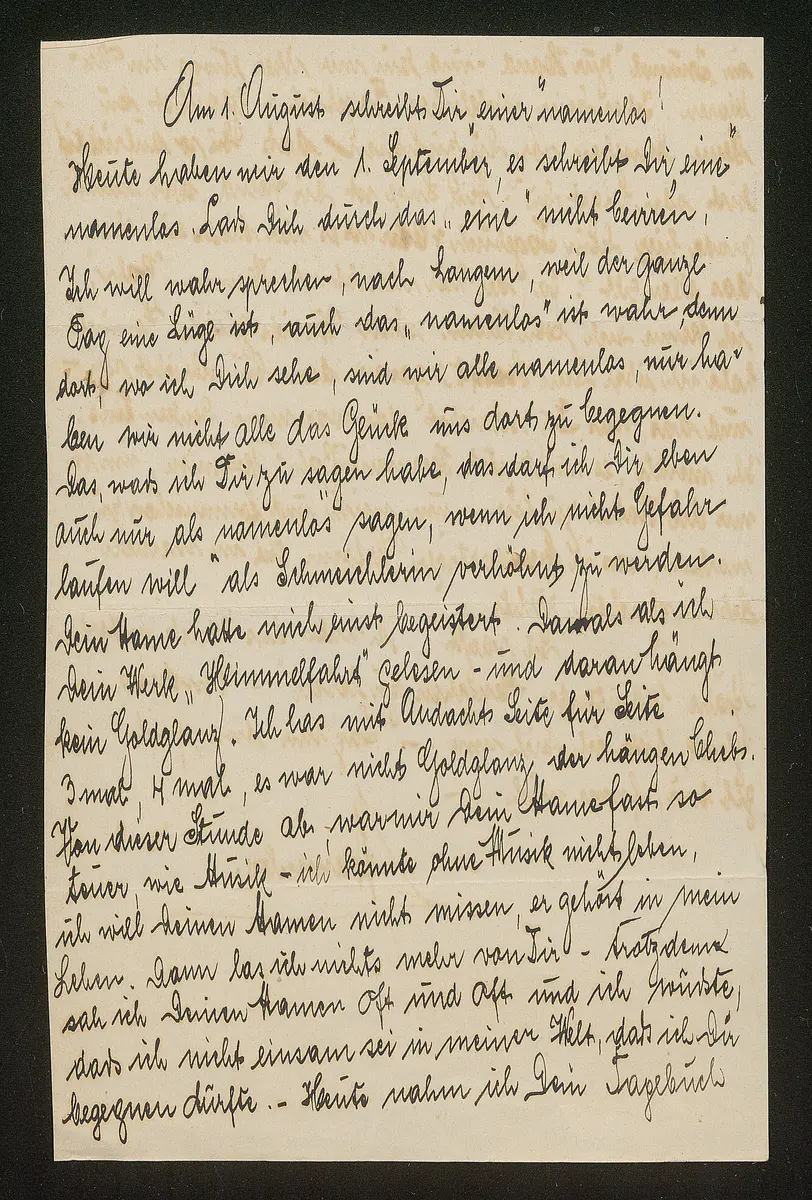 Am 1. August schreibt Dir „einer" namenlos!
Heute haben wir den 1. September, es schreibt Dir „eine"
namenlos. Lass Dich durch das „eine" nicht beirren,
Ich will wahr sprechen, nach Langem, weil der ganze
Tag eine Lüge ist, auch das „namenlos" ist wahr, denn
dort, wo ich Dich sehe, sind wir alle namenlos, nur ha-
ben wir nicht alle das Glück uns dort zu begegnen.
Das, was ich Dir zu sagen habe, das darf ich Dir eben
auch nur als namenlos sagen, wenn ich nicht Gefahr
laufen will als Schmeichlerin verhöhnt zu werden.
Dein Name hatte mich einst begeistert. Damals als ich
Dein Werk „Himmelfahrt" gelesen - und daran hängt
kein Goldglanz. Ich las mit Andacht Seite für Seite
3 mal, 4 mal, es war nicht Goldglanz der hängen blieb.
Von dieser Stunde ab, war mir Dein Name fast so
teuer, wie Musik - ich könnte ohne Musik nicht leben,
ich will Deinen Namen nicht missen, er gehört in mein
Leben. Dann las ich nichts mehr von Dir - trotzdem
sah ich Deinen Namen oft und oft und ich wüsste,
dass ich nicht einsam sei in meiner Welt, dass ich Dir
begegnen dürfte. - Heute nahm ich Dein Tagebuch